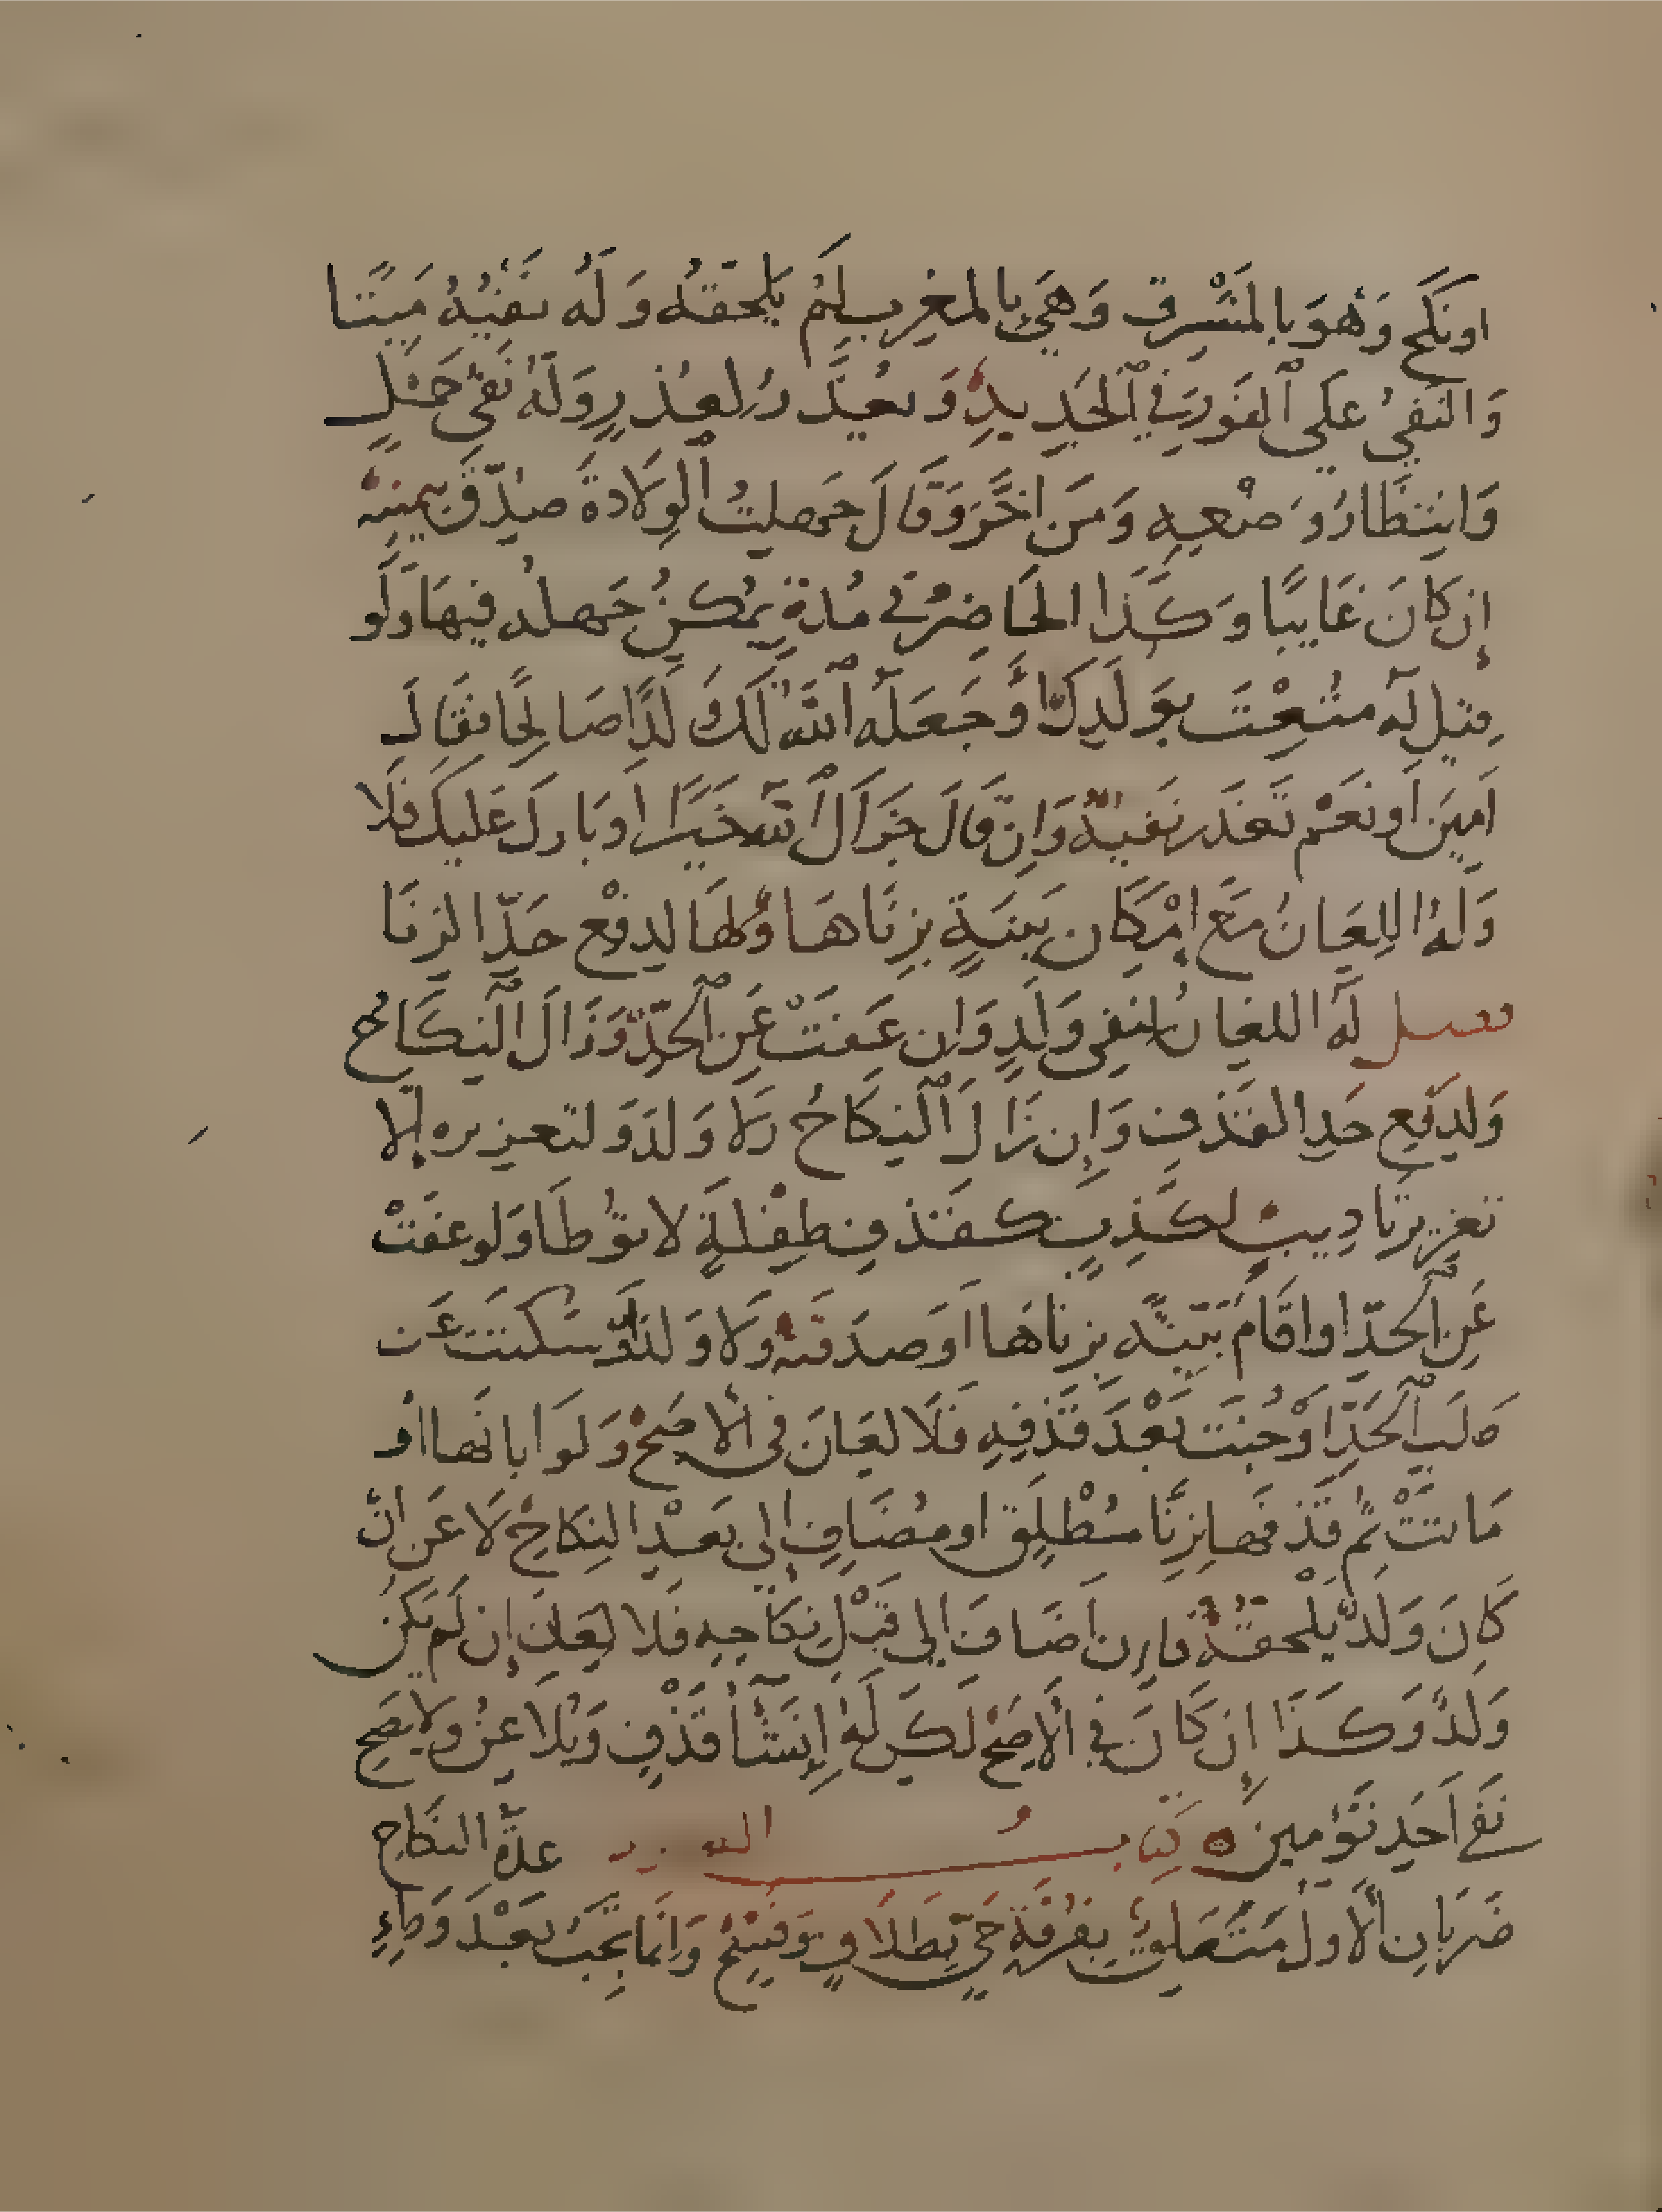 اونكح وَهُوَ بالمَشْرِق وَهىَ بالمغرب لَمْ يَلحقهُ وَلَهُ نفيُهُ مَيّتًا
وَالنَفيُ عَلَى الفَورِ فِي الجَدِيدِ وَ يعُذَّرُ لِعُذرٍ وَلَهُ نَفيُ حَملٍ
وَانتِظَارُ وَضعِهِ وَمَن اخَّرَ وَقَالَ جَهلتُ الوِلَادةَ صُدِّقَ بيَمينِهِ
إن كانَ غَايبًا وَكَذَا الحَاضِرُ فِي مُدةٍ يُمكنُ جَهلُه فيهَا وَلَو
قيل لَه متّعْتَ بوَلَدِكَ أَو جَعَلَه اللَّهُ لَكَ وَلَدًا صَالِحًا فقَالَ
اَمِينَ اَو نَعَمْ تَعَذَّر نَفيُهُ وَاِن قَالَ جَزَاكَ اللّه خَيرًا اوبَارك عَليك فَلَا
وَلهُ اللِعَانُ مَعَ امْكَان بَينَةٍ بِزِنَاهَا وَلهَا لدِفْعِ حَدِّ الزِنَا
فصل لَهُ اللعَانُ لنفي وَلَدٍ وَان عَفَتْ عَنِ الحَدِّ وَزَالَ النِكَاحُ
وَلدَفعِ حَدِ القَذف وَإِن زَالَ النِكَاحُ وَلا وَلدَ وَلتعزيره إلا
تعزير تادِيبٍ لكَذِبٍ كقَذفِ طفْلَةٍ لا توُطَا وَلو عفَتْ
عَنِ الحَدّ اواقَامَ بَيّنَةً بزناهَا اَوصدَقَتهُ وَلا وَلدَ اَو سَكتَت عَن
طَلَبِ الحَدِّ اَوْ جُنَت بَعْدَ قَذفِهِ فَلَا لعَانَ فى الأصَحِّ وَلَو ابانَها او
مَاتَتْ ثُم قَذفَها بزِنًا مُطْلَقٍ او مُضَافٍ إلى بَعدِ النِكاحِ لَاعَن انْ
كَانَ وَلَدٌ يَلْحقهُ فاِن اَضَافَ إلى قَبْلِ نِكَاحِهِ فَلا لِعَانَ إن لَم يَكُن
وَلَدٌ وَكَذَا إن كَانَ فِي الأصَحِّ لَكن لَهُ إنشَأُ قَذْفٍ وَيُلاعِنُ وَلا يَصِحّ
نَفي اَحَدِ تَوْءمين ه كِتَابُ العدد عدّة النكَاح
ضَربَانِ الأولُ مُتَعَلِقٌ بِفُرقَةِ حَيٍّ بِطَلَاقٍ وَفسْخٍ وَإنّمَا تجبُ بَعْدَ وَطءٍ